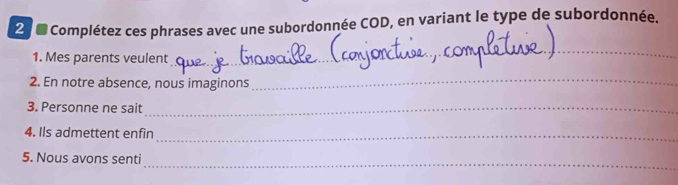 2 Complétez ces phrases avec une subordonnée COD, en variant le type de subordonnée.
1. Mes parents veulent que je travaille (conjonctive, complétive)
2. En notre absence, nous imaginons
3. Personne ne sait
4. Ils admettent enfin
5. Nous avons senti